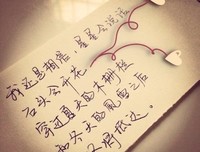 我还是相信，星星会说话
石头会开花
穿过夏天的木栅栏
和冬天的风雪之后
你终会抵达。